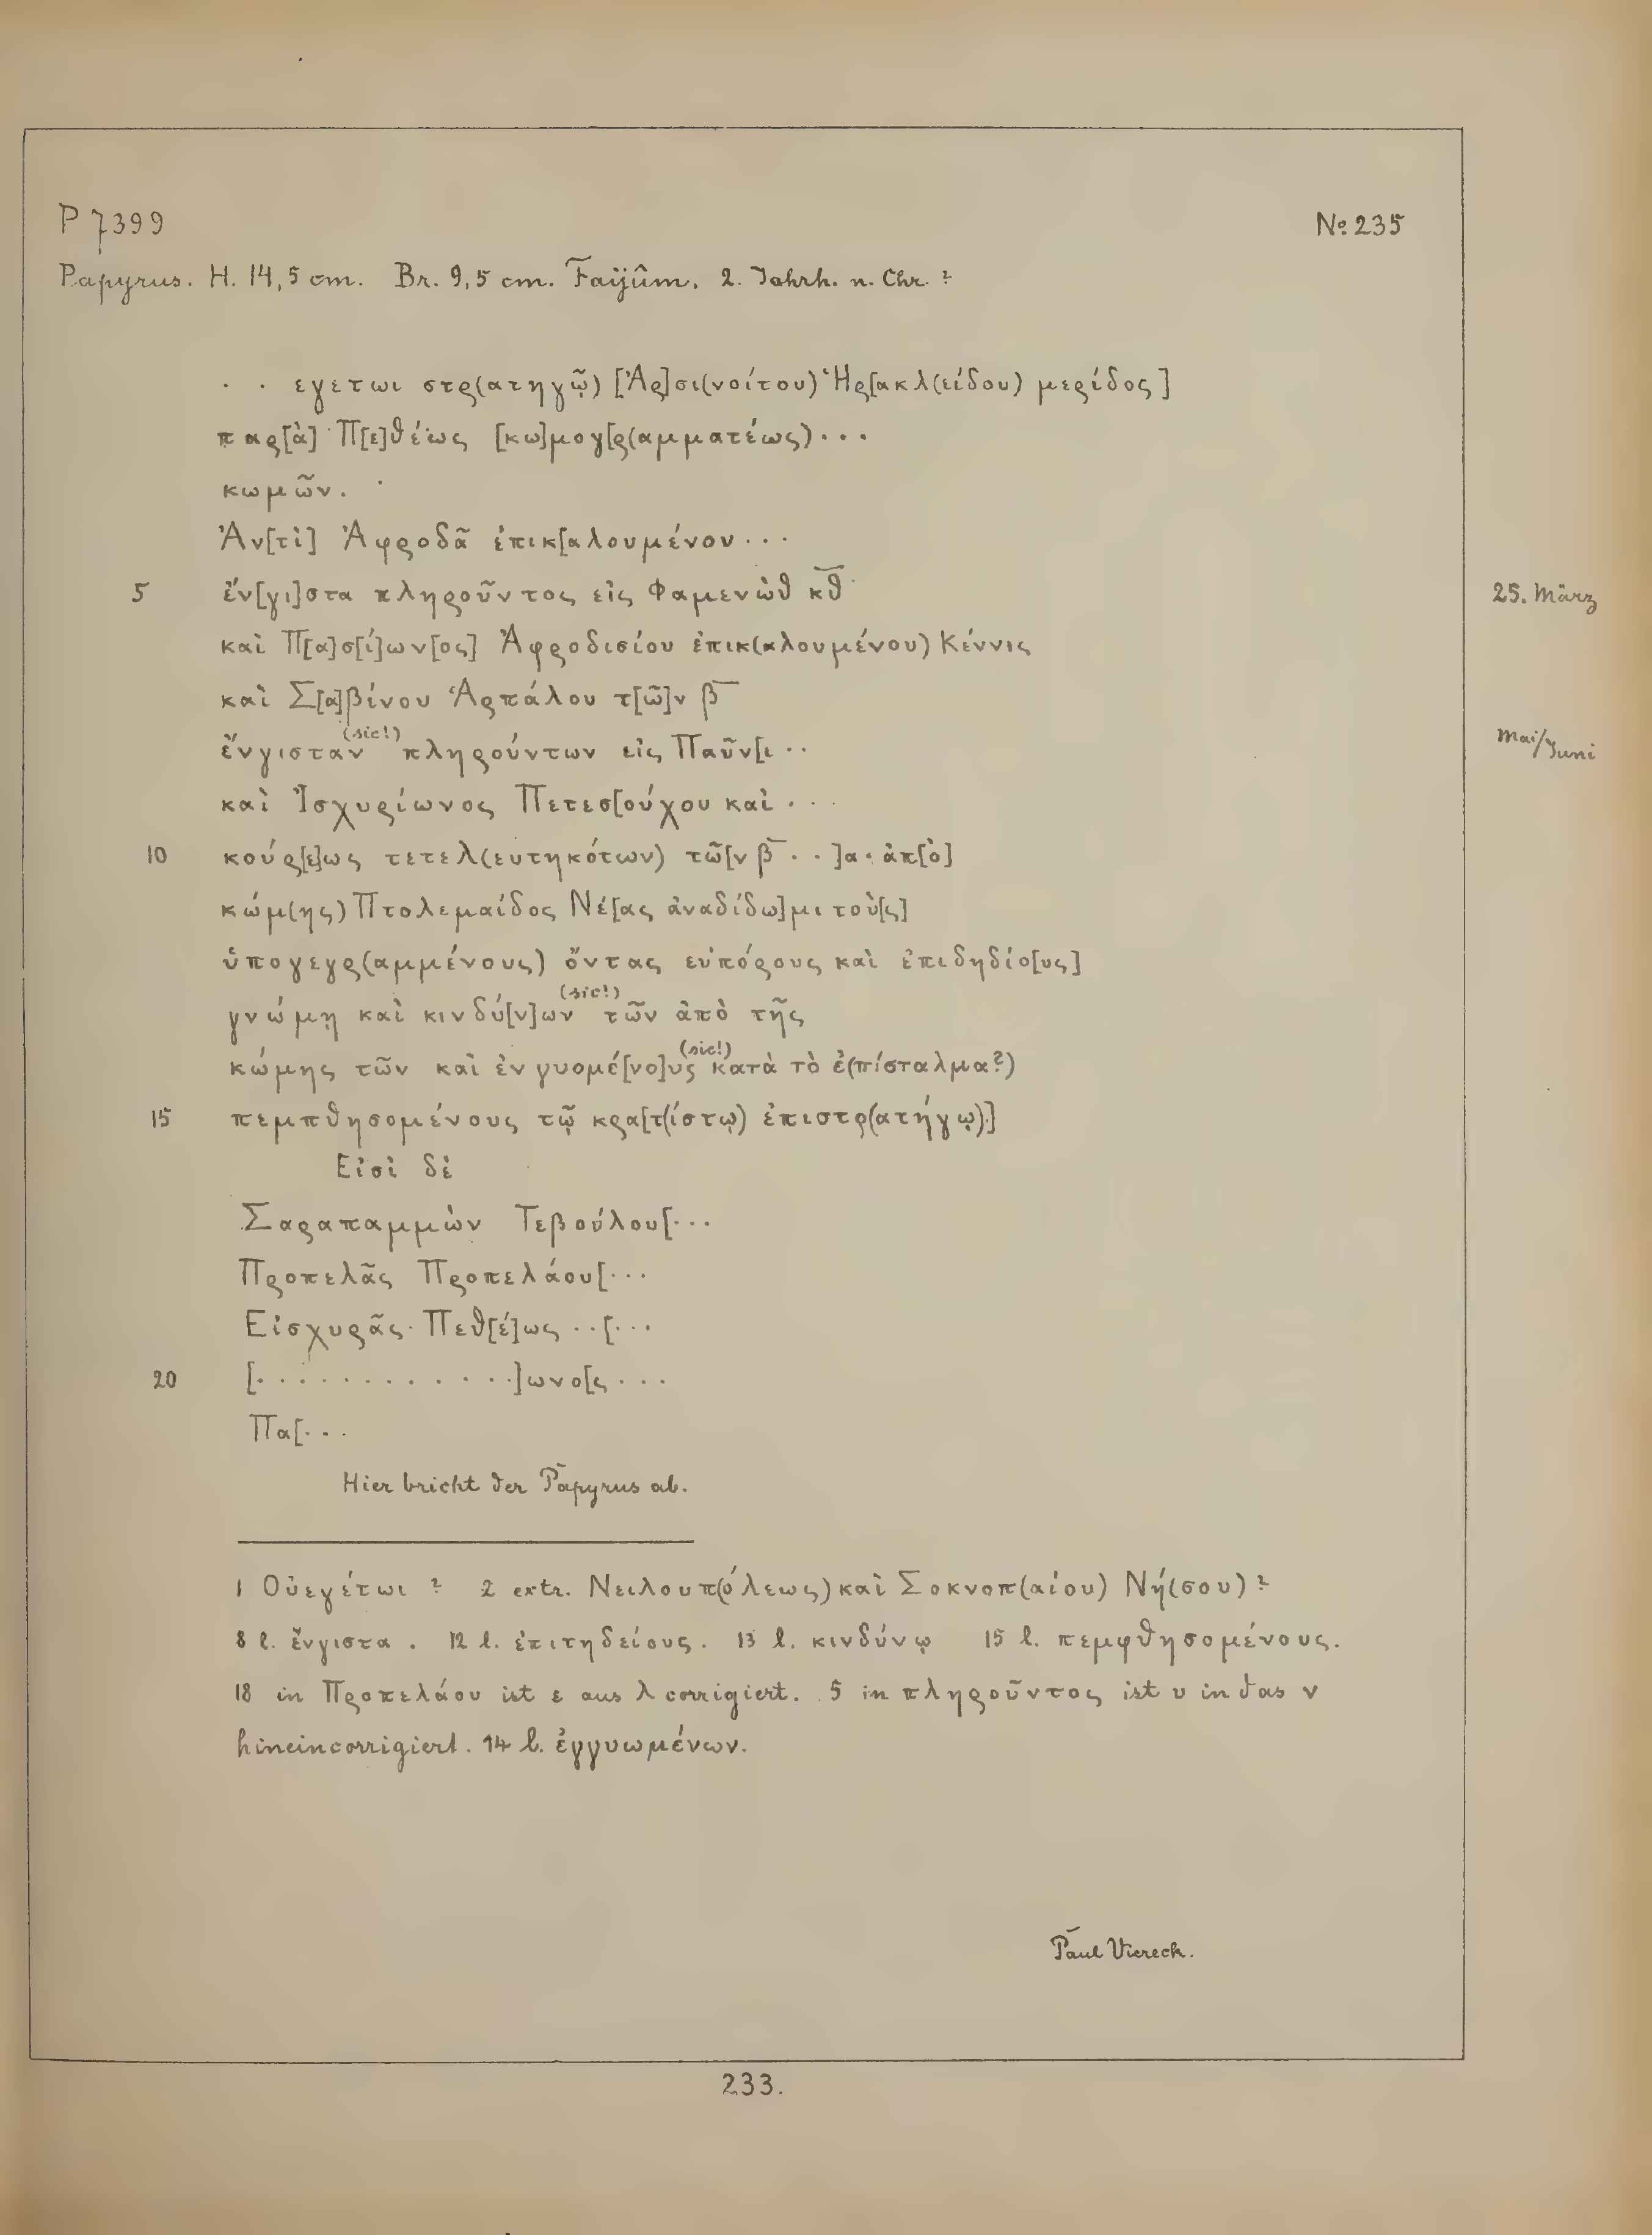 P 7399
No. 235
Papyrus. H. 14,5 cm. Br. 9,5 cm. Faijûm. 2. Jahrh. n. Chr. ?
· · εγετωι στρ(ατηγῷ) [Ἀρ]σι(νοίτου) Ἡρ[ακλ(είδου) μερίδος]
παρ[ὰ] Π[ε]θέως [κω]μογ[ρ(αμματέως) · · ·
κωμῶν.
Ἀν[τὶ] Ἀφροδᾶ ἐπικ[αλουμένου · · ·
5 ἔν[γι]στα πληροῦντος εἰς Φαμενὼθ κθ 25. März
καὶ Π[α]σ[ί]ων[ος] Ἀφροδισίου ἐπικ(αλουμένου) Κέννις
καὶ Σ[α]βίνου Ἁρπάλου τ[ῶ]ν β
ἔνγισταν (sic!) πληρούντων εἰς Παῦν[ι · · Mai/Juni
καὶ Ἰσχυρίωνος Πετεσ[ούχου καὶ · · ·
10 κούρ[ε]ως τετελ(ευτηκότων) τῶ[ν β · · ]α · ἀπ[ὸ]
κώμ(ης) Πτολεμαίδος Νέ[ας ἀναδίδω]μι τοὺ[ς]
ὑπογεγρ(αμμένους) ὄντας εὐπόρους καὶ ἐπιδηδίο[υς]
γνώμῃ καὶ κινδύ[ν]ων (sic!) τῶν ἀπὸ τῆς
κώμης τῶν καὶ ἐνγυομέ[νο]υς (sic!) κατὰ τὸ ἐ(πίσταλμα?)
15 πεμπθησομένους τῷ κρα[τ(ίστῳ) ἐπιστρ(ατήγῳ)]
Εἰσὶ δὲ
Σαραπαμμὼν Τεβούλου[· · ·
Προπελᾶς Προπελάου[· · ·
Εἰσχυρᾶς Πεθ[έ]ως · · [· · ·
20 [· · · · · · · · · · · ·]ωνο[ς · · ·
Πα[· · ·
Hier bricht der Papyrus ab.
1 Οὐεγέτωι ? 2 extr. Νειλουπ(όλεως) καὶ Σοκνοπ(αίου) Νή(σου) ?
8 l. ἔνγιστα . 12 l. ἐπιτηδείους. 13 l. κινδύνῳ 15 l. πεμφθησομένους.
18 in Προπελάου ist ε aus λ corrigiert. 5 in πληροῦντος ist υ in das ν
hineincorrigiert. 14 l. ἐγγυωμένων.
Paul Viereck.
233.